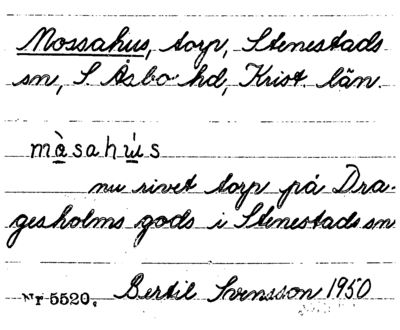 Mossahus, torp, Stenestads
sn, S. Åsbo hd, Krist. län.
màsahús
nu rivet torp på Dra-
gesholms gods i Stenestads sn
Bertil Svensson 1950
Nr 5520.